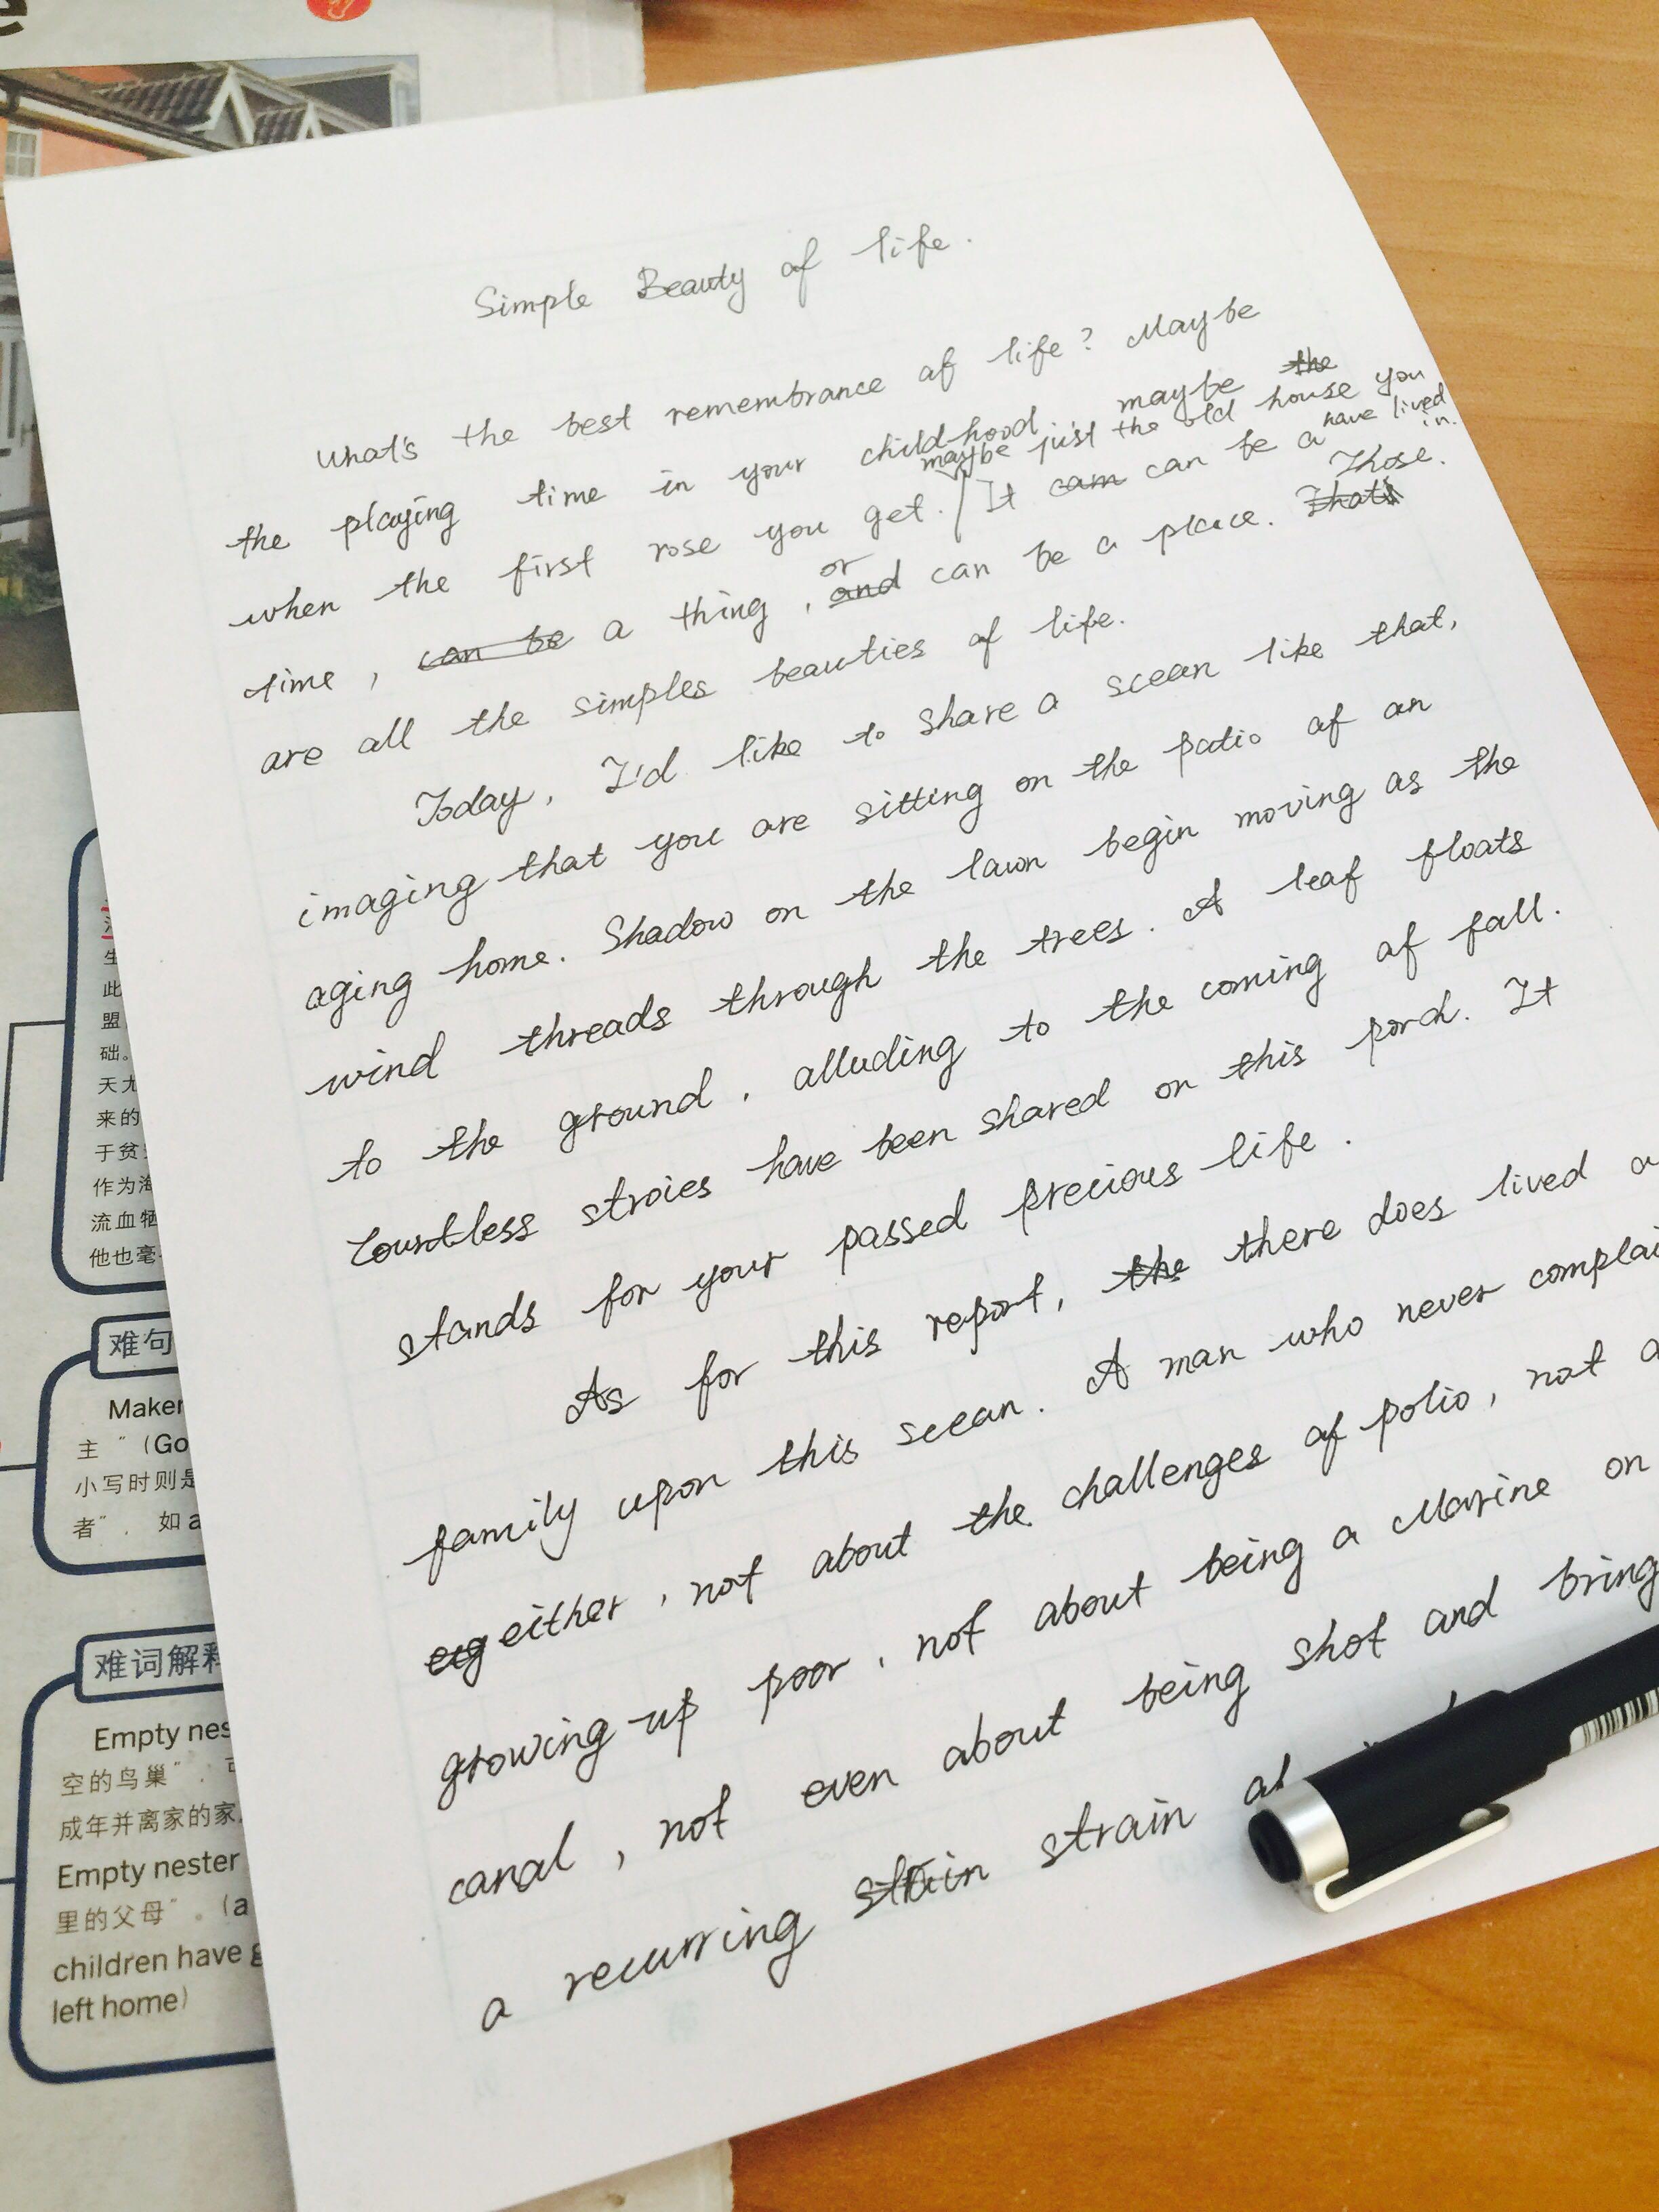 Simple Beauty of life.
What's the best remembrance of life? Maybe
the playing time in your childhood, maybe the
when the first rose you get. maybe just the old house you have lived in. It cam can be a
time, can be a thing, and or can be a place. That's Those.
are all the simples beauties of life.
Today, I'd like to share a scean like that,
imaging that you are sitting on the patio of an
aging home. Shadow on the lawn begin moving as the
wind threads through the trees. A leaf floats
to the ground, alluding to the coming of fall.
Countless stroies have been shared on this porch. It
stands for your passed precious life.
As for this report, the there does lived a
family upon this scean. A man who never complai
eig either, not about the challenges of polio, not a
growing-up poor, not about being a Marine on
canal, not even about being shot and bring
a recurring stain strain
生
此
盟
础。
天
来的
于贫
作为海
流血牺
他也毫
难句
Maker
主" (Go
小写时则是
者", 如a
难词解释
Empty nes
空的鸟巢",
成年并离家的家
Empty nester
里的父母"。(a
children have g
left home)